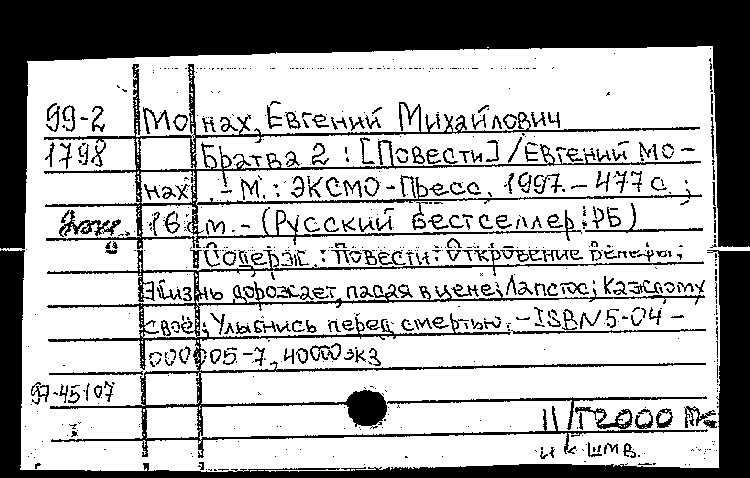 99-2 Монах, Евгений Михайлович
1798 Братва 2 : [Повести] / Евгений Мо-
нах. - М.: ЭКСМО-Пресс, 1997. - 477 с ;
16 см. - (Русский бестселлер : РБ)
Содерж.: Повести: Откровение Венеры;
Жизнь дорожает, падая в цене; Лапстос; Каждому
своё; Улыбнись перед смертью. - ISBN 5-04-
000005-7, 40000 экз
97-45107
II/Т2000
и к шмв.